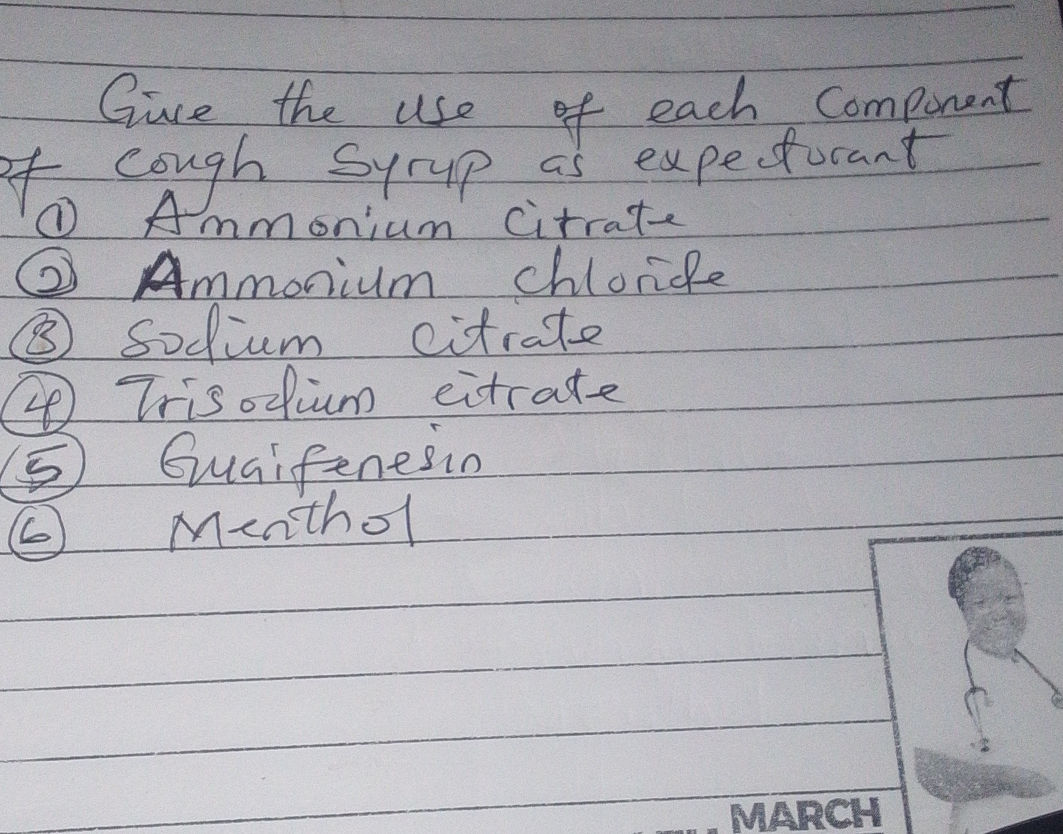 Give the use of each Component
of cough syrup as expectorant
① Ammonium Citrate
② Ammonium chloride
③ Sodium citrate
④ Trisodium citrate
⑤ Guaifenesin
⑥ Menthol
MARCH